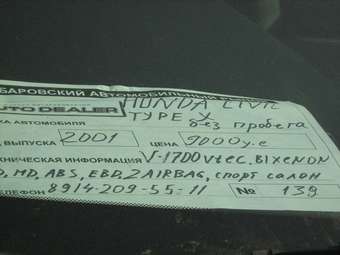 БАРОВСКИЙ АВТОМОБИЛЬНЫЙ
AUTO DEALER HONDA CIVIC
TYPE X без пробега
КА АВТОМОБИЛЯ
ВЫПУСКА 2001 ЦЕНА 9000 у.е
НИЧЕСКАЯ ИНФОРМАЦИЯ V-1700 Vtec. BIXENON
D, MD, ABS, EBD, 2 AIRBAG, спорт салон
ЕЛЕФОН 8914-209-55-11 № 139